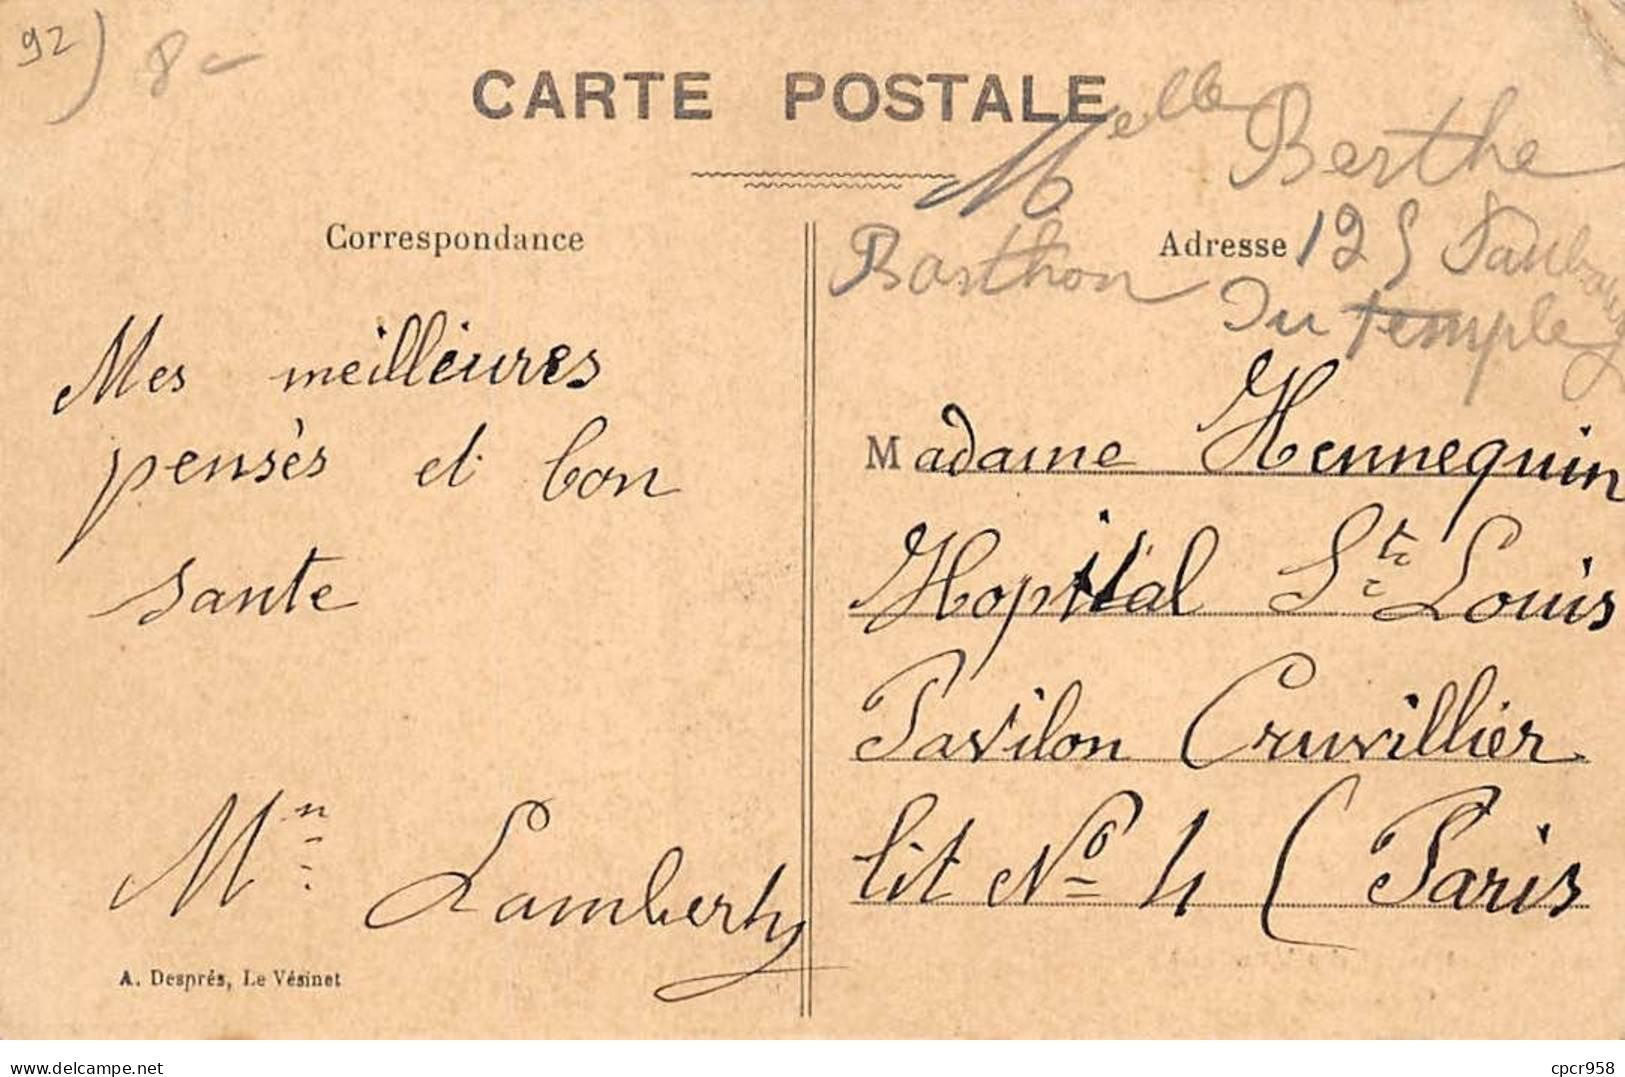 92) 8-
CARTE POSTALE
Melle Berthe
Barthon 125 Faubourg
Du temple
Correspondance
Adresse
Mes meilleures
pensès et bon
sante
Mn Lamberty
A. Després, Le Vésinet
Madame Hennequin
Hopital St Louis
Pavilon Cruvillier
lit No 4 (Paris
delcampe.net
cpcr958